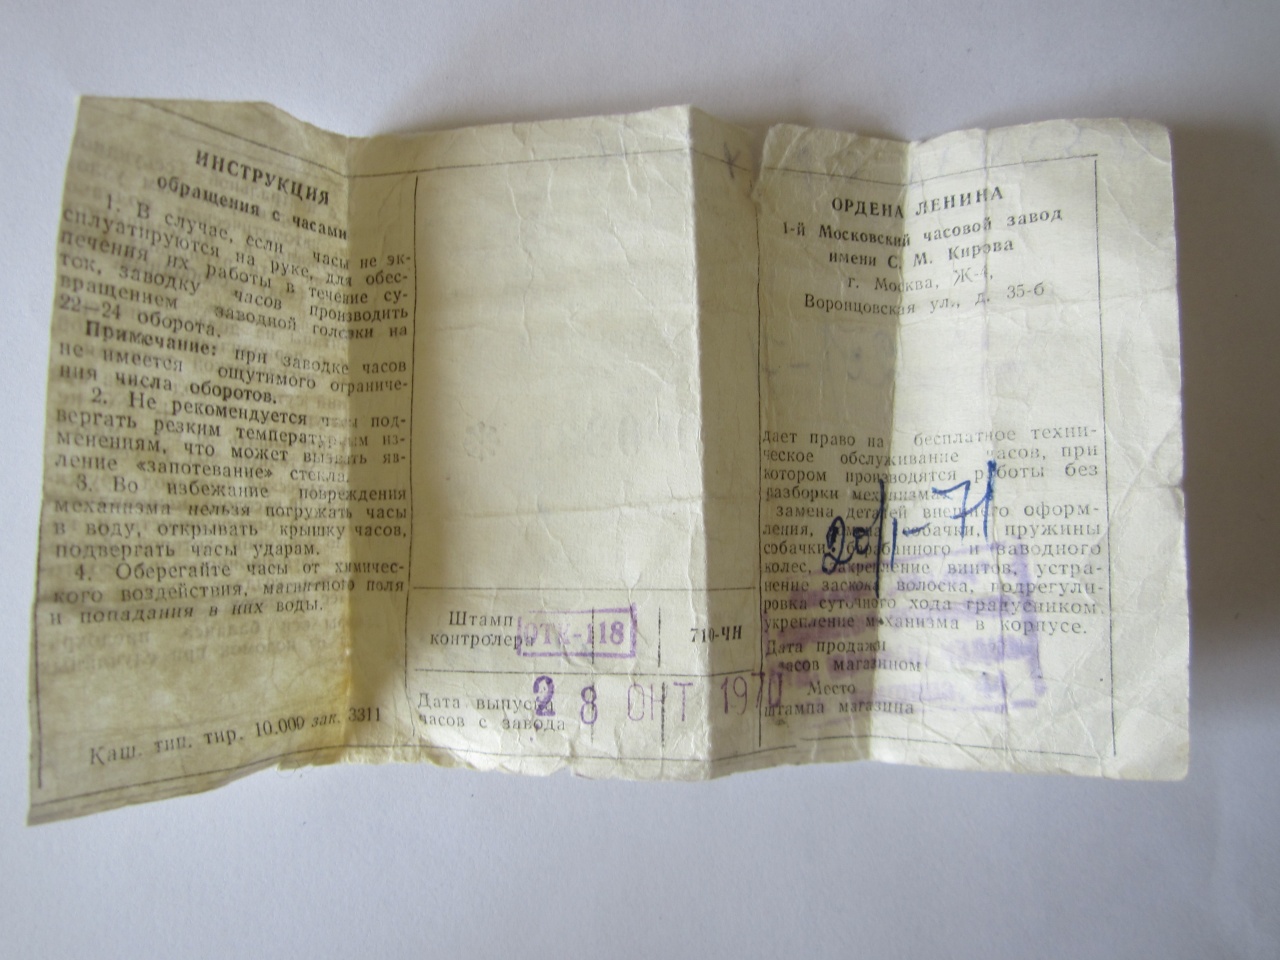 ИНСТРУКЦИЯ
обращения с часами
1. В случае, если часы не эк-
сплуатируются на руке, для обес-
печения их работы в течение су-
ток, заводку часов производить
вращением заводной головки на
22—24 оборота.
Примечание: при заводке часов
не имеется ощутимого ограниче-
ния числа оборотов.
2. Не рекомендуется часы под-
вергать резким температурным из-
менениям, что может вызвать яв-
ление «запотевание» стекла.
3. Во избежание повреждения
механизма нельзя погружать часы
в воду, открывать крышку часов,
подвергать часы ударам.
4. Оберегайте часы от химичес-
кого воздействия, магнитного поля
и попадания в них воды.
Каш. тип. тир. 10.000 зак. 3311
Штамп
контролера
ОТК-118
710-ЧН
Дата выпуска
часов с завода
28 ОКТ 1970
ОРДЕНА ЛЕНИНА
1-й Московский часовой завод
имени С. М. Кирова
г. Москва, Ж-4,
Воронцовская ул., д. 35-б
дает право на бесплатное техни-
ческое обслуживание часов, при
котором производятся работы без
разборки механизма:
замена деталей внешнего оформ-
ления, замена собачки, пружины
собачки, барабанного и заводного
колес, закрепление винтов, устра-
нение заскока волоска, подрегули-
ровка суточного хода градусником,
укрепление механизма в корпусе.
20/I-71
Дата продажи
часов магазином
Место
штампа магазина